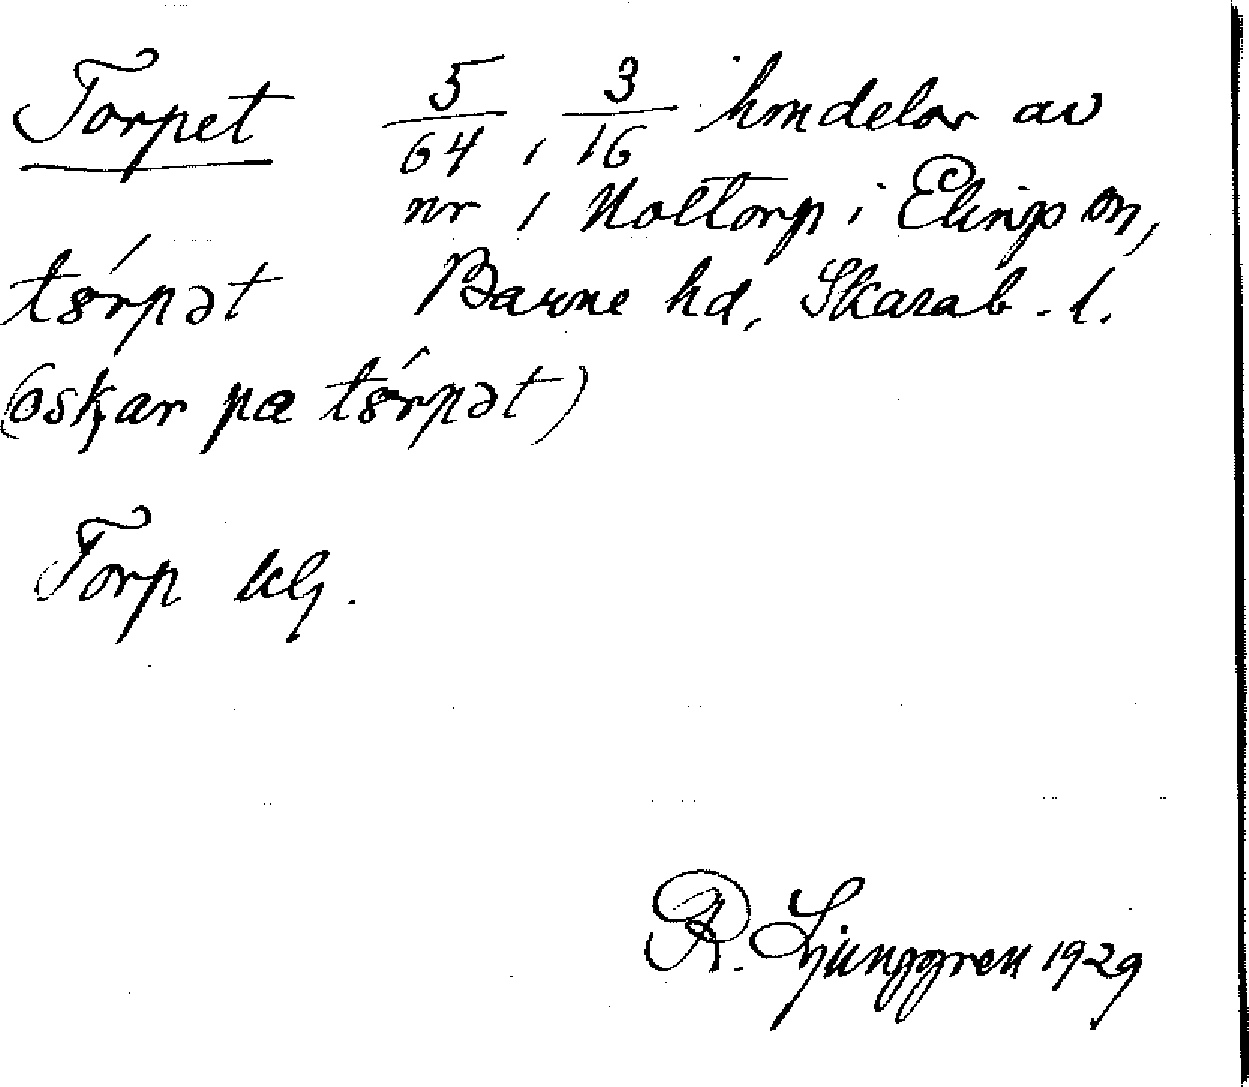 Torpet 5/64, 3/16 hmdelar av
nr 1 Noltorp i Eling sn,
tǿrpət Barne hd, Skarab. l.
(oskar pa tǿrpət)
Torp klj.
R. Ljunggren 1929